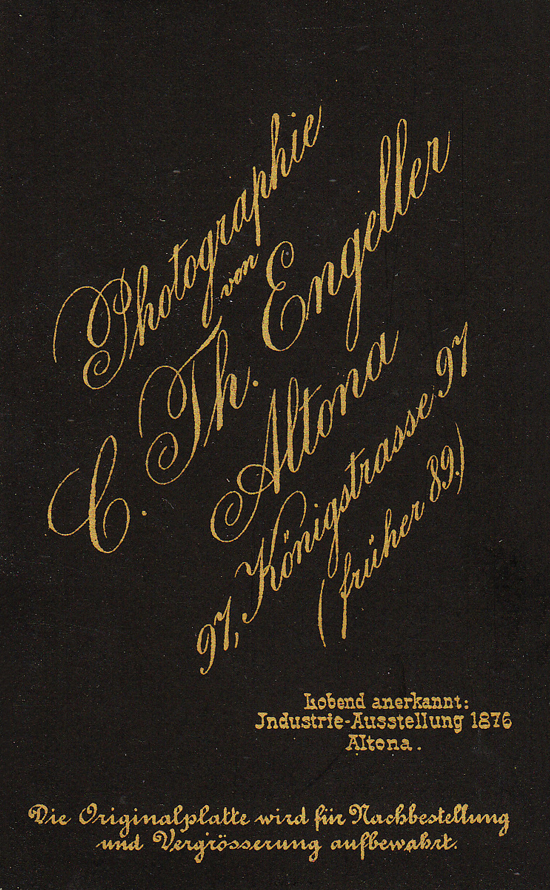 Photographie
von
C. Th. Engeller
Altona
97, Königstrasse 97
(früher 89.)
Lobend anerkannt:
Industrie-Ausstellung 1876
Altona.
Die Originalplatte wird für Nachbestellung
und Vergrösserung aufbewahrt.